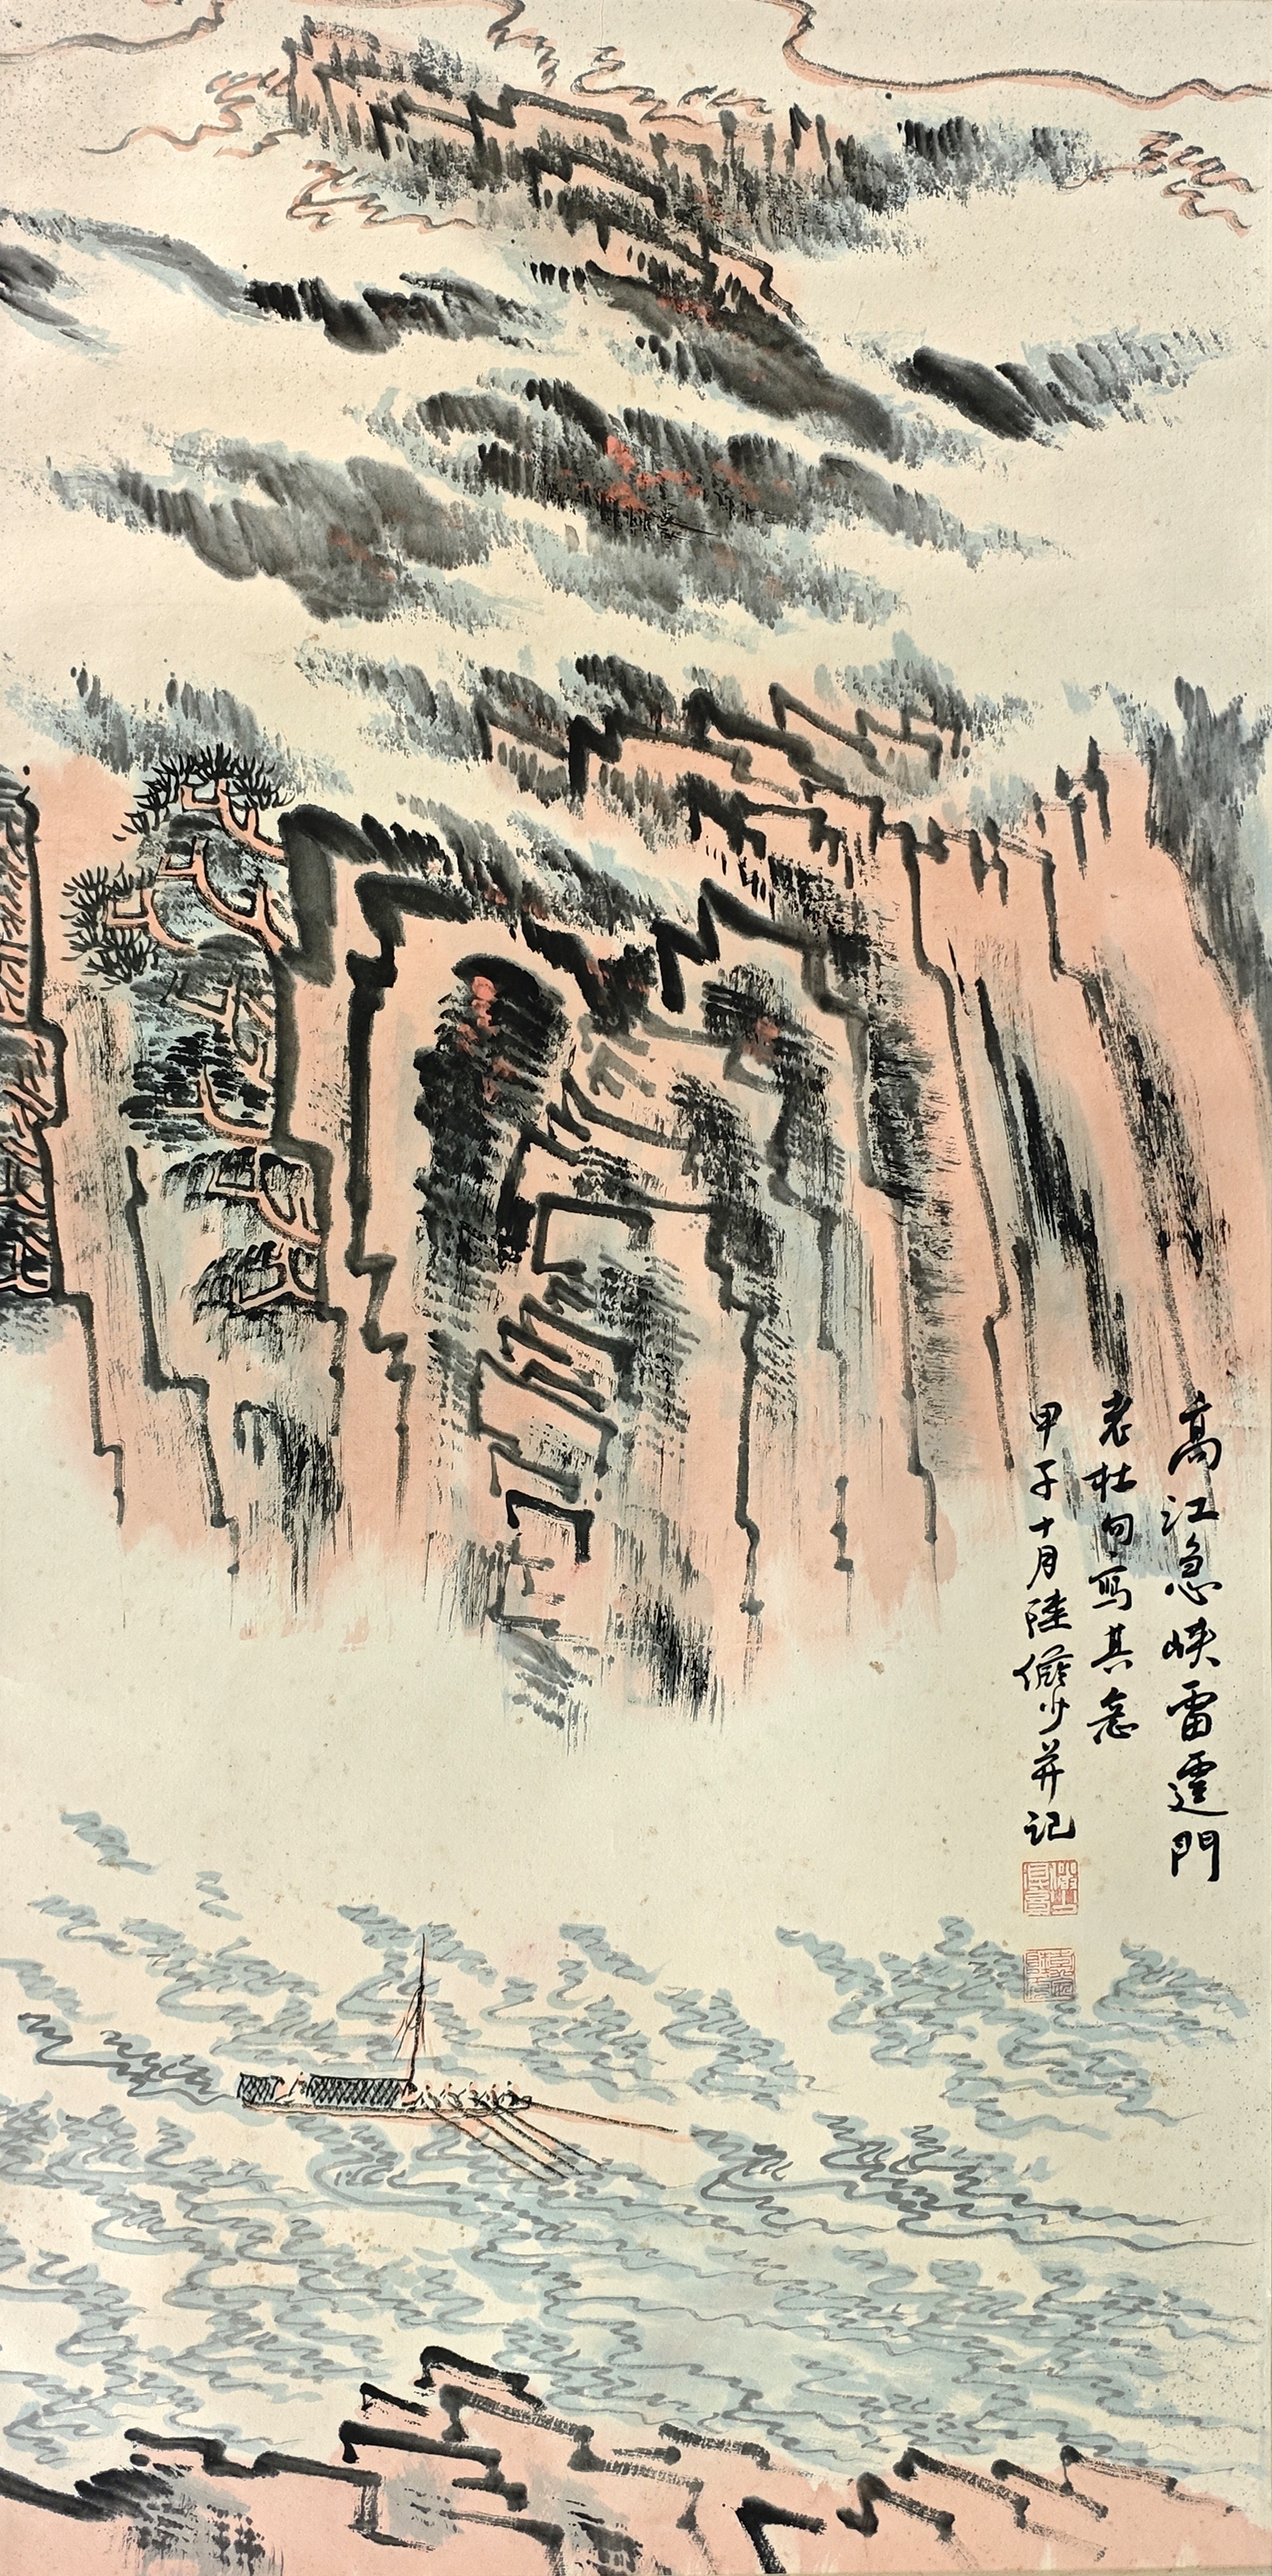 高江急峡雷霆門
老杜句寫其意
甲子十月陸儼少并記